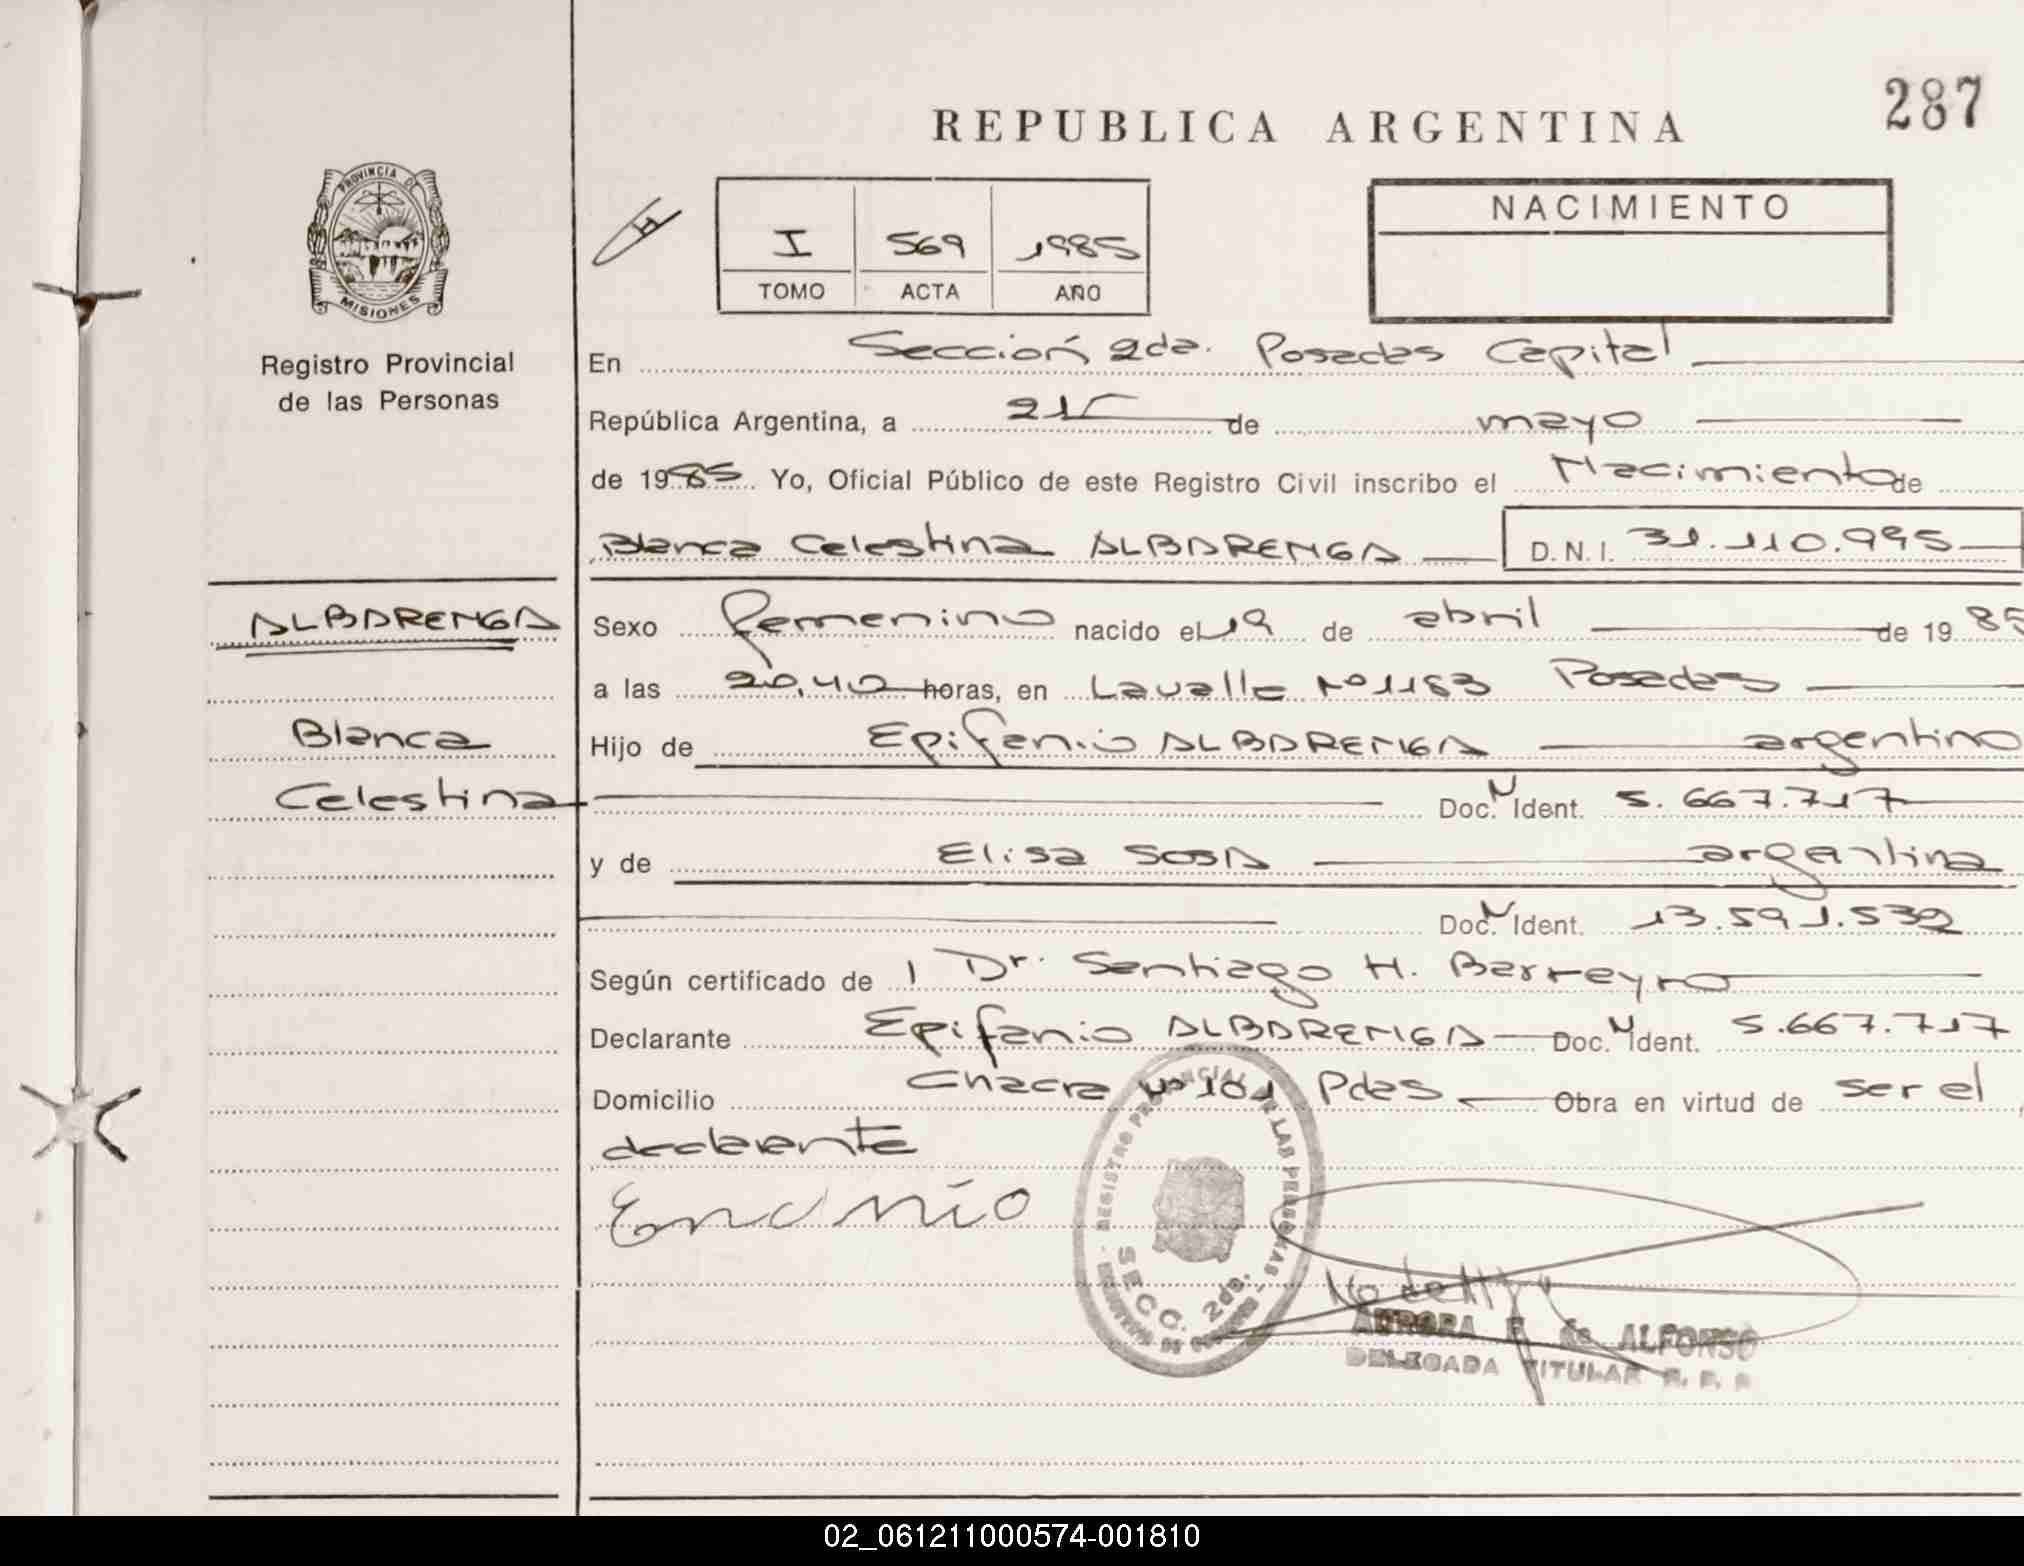 287
REPUBLICA ARGENTINA
PROVINCIA DE
MISIONES
Registro Provincial
de las Personas
I 569 1985
TOMO ACTA AÑO
NACIMIENTO
En Sección 2da. Posadas Capital
República Argentina, a 21 de mayo
de 1985 Yo, Oficial Público de este Registro Civil inscribo el Nacimiento de
Blanca Celestina ALBARENGA D.N.I. 31.110.995
ALBARENGA
Blanca
Celestina
Sexo femenino nacido el 19 de abril de 1985
a las 20,40 horas, en Lavalle Nº 1183 Posadas
Hijo de Epifanio ALBARENGA argentino
Doc. N Ident. 5.667.717
y de Elisa SOSA argentina
Doc. N Ident. 13.591.532
Según certificado de 1 Dr. Santiago H. Barreyro
Declarante Epifanio ALBARENGA Doc. N Ident. 5.667.717
Domicilio Chacra Nº 101 Pdas Obra en virtud de ser el
declarante
REGISTRO PROVINCIAL DE LAS PERSONAS
SECC. 2da.
AURORA de ALFONSO
DELEGADA TITULAR R. P. P.
02_061211000574-001810